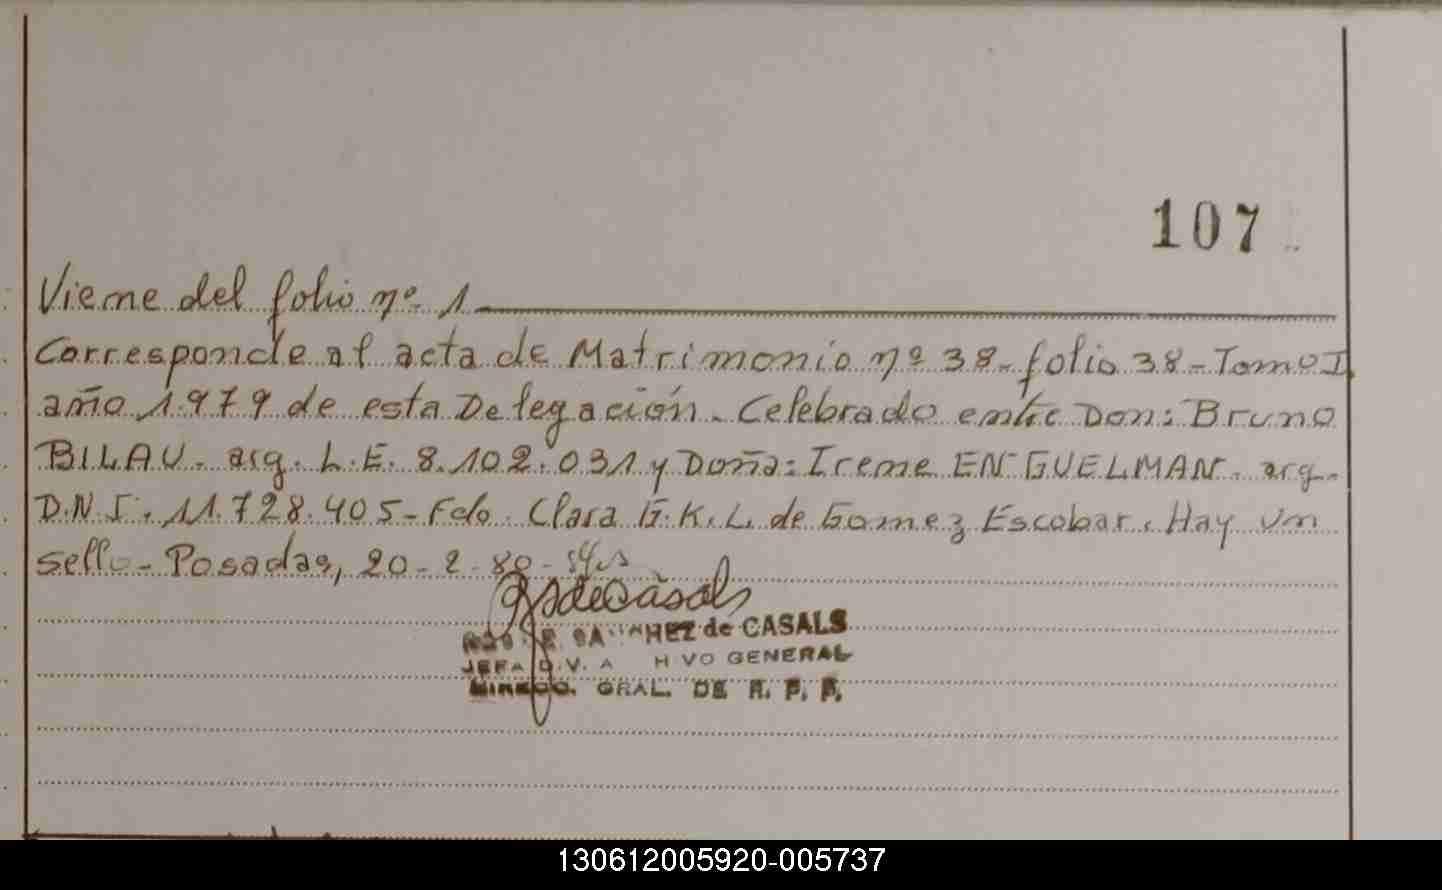 107
Viene del folio nº 1
Corresponde al acta de Matrimonio nº 38-folio 38-Tomo I
año 1.979 de esta Delegación. Celebrado entre Don: Bruno
BILAU. arg. L.E. 8.102.031 y Doña: Irene ENGUELMAN. arg.
D.N.I. 11.728.405-Fdo. Clara G.K.L. de Gomez Escobar. Hay un
sello-Posadas, 20-2-80-
de CASALS
JEFA GENERAL
GRAL. DE R. P. P.
130612005920-005737